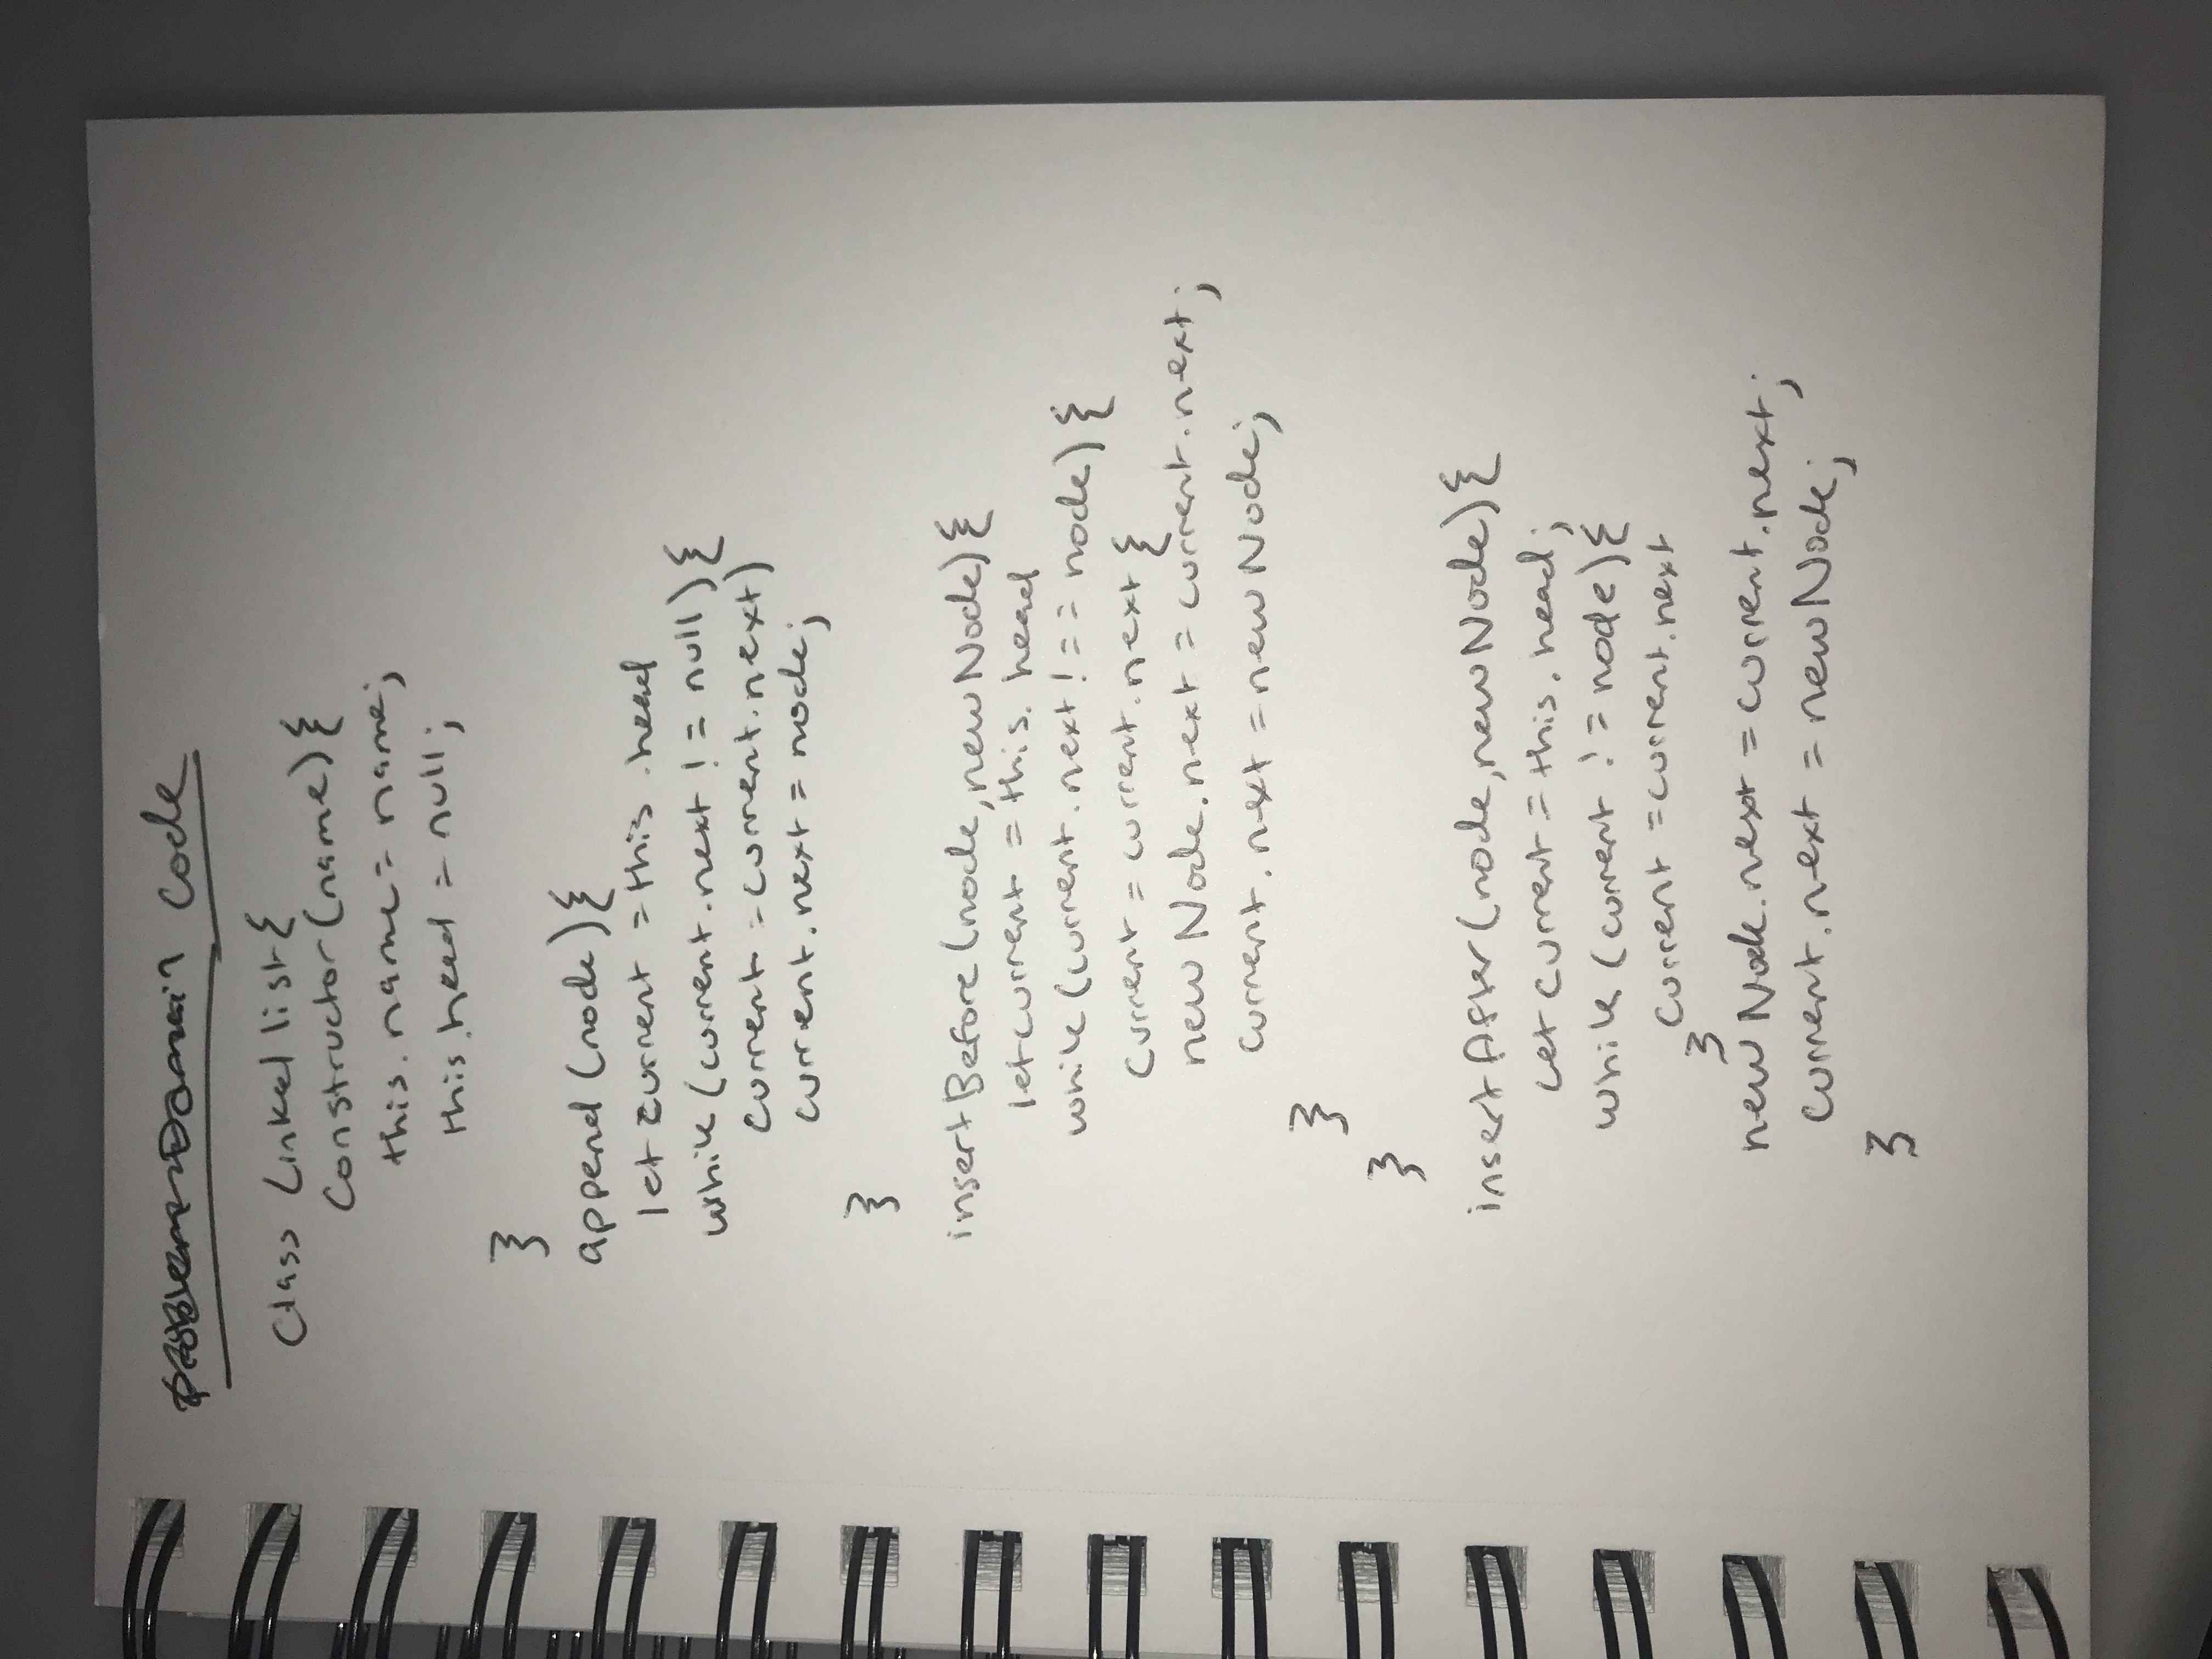 Problem Domain Code
Class Linked list {
Constructor (name) {
this. name = name;
this.head = null;
}
append (node) {
let current = this .head
while (current.next != null) {
current = current.next)
current.next = node;
}
insertBefore (node, newNode) {
let current = this. head
while (current.next !== node) {
Current = current.next {
newNode.next = current.next;
current.next = newNode;
}
}
insertAfter (node, newNode) {
Let current = this. head;
while (current != node) {
current = current.next
}
newNode.next = current.next;
current.next = newNode;
}